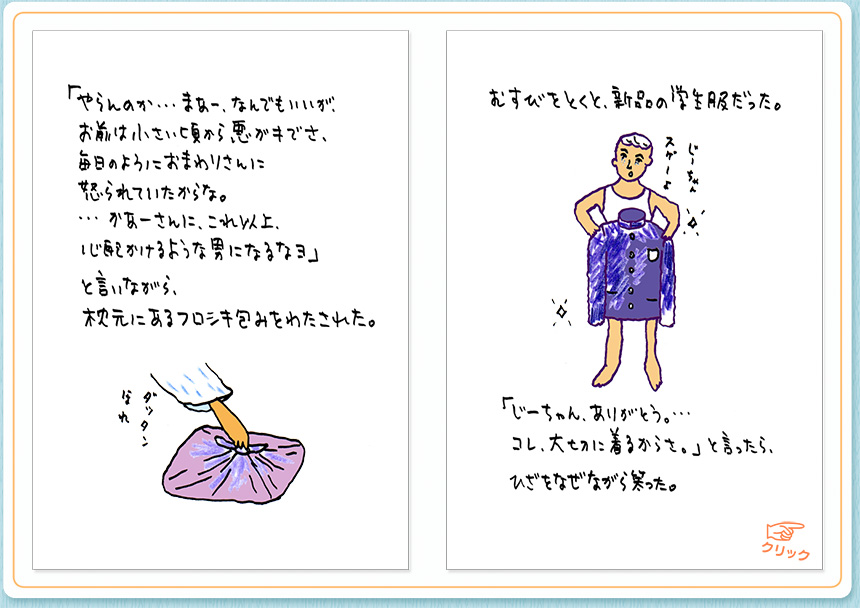 「やらんのか…まあー、なんでもいいが、
お前は小さい頃から悪ガキでさ、
毎日のようにおまわりさんに
怒られていたからな。
…かあーさんに、これ以上、
心配かけるような男になるなヨ」
と言いながら、
枕元にあるフロシキ包みをわたされた。
ダッタン
なれ
むすびをとくと、新品の学生服だった。
じーちゃん
スゲーよ
「じーちゃん、ありがとう。…
コレ、大切に着るからさ。」と言ったら、
ひざをなぜながら笑った。
クリック